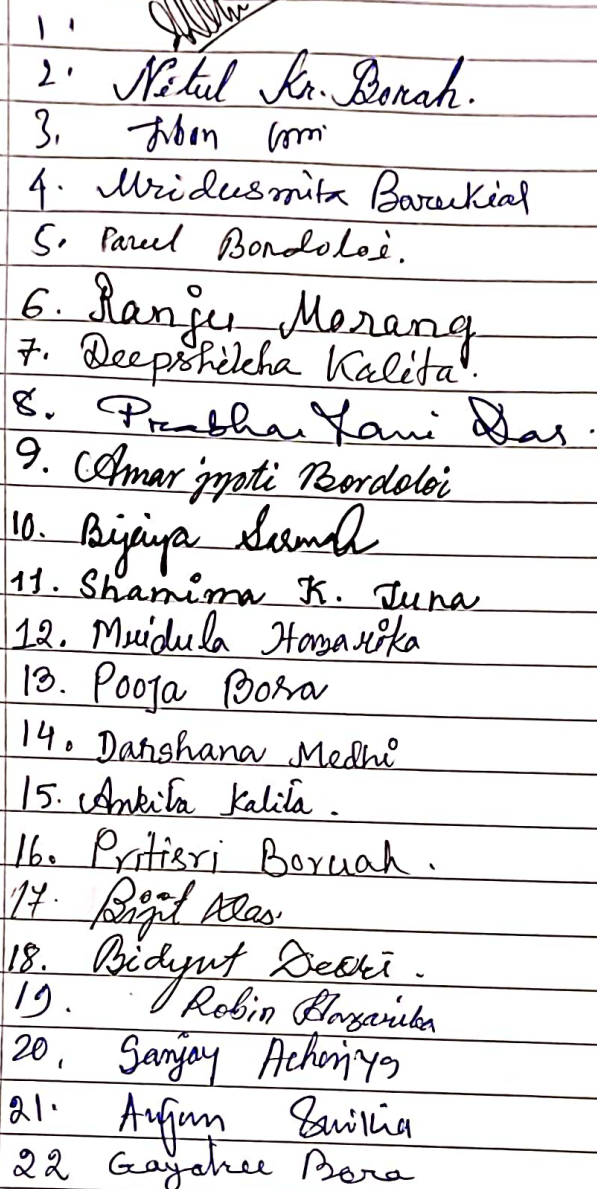 1.
2. Nitul Kr. Borah.
3.
4. Mridusmita Barukial
5. Parul Bordoloi.
6. Ranju Morang
7. Deepshikha Kalita.
8. Prabha Rani Das.
9. Amar jyoti Bordoloi
10. Bijaya Sarmah
11. Shamima K. Juna
12. Mridula Hazarika
13. Pooja Bora
14. Darshana Medhi
15. Ankita Kalita.
16. Pritisri Boruah.
17. Bijit Das.
18. Bidyut Deori.
19. Robin Hazarika
20. Sanjay Acharjya
21. Anjan
22 Gayatree Bora